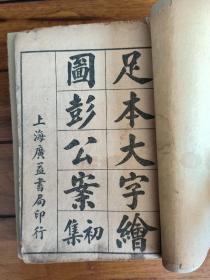 足本大字繪
圖彭公案初集
上海廣益書局印行